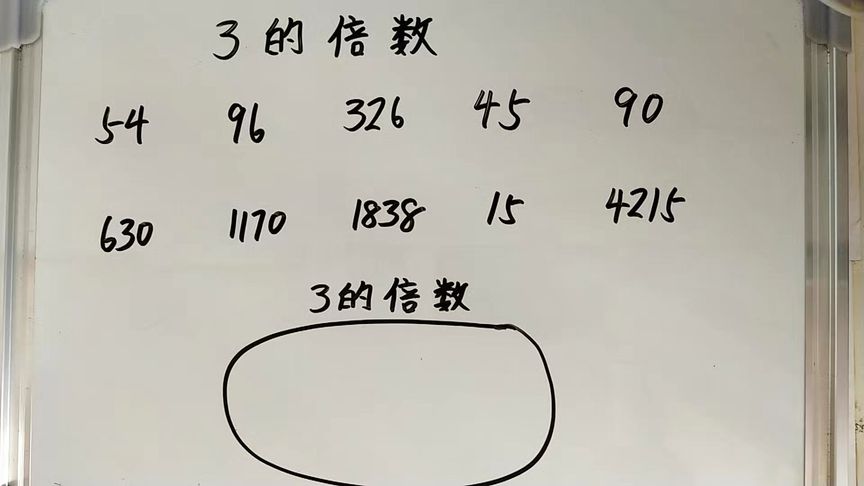 3的倍数
54 96 326 45 90
630 1170 1838 15 4215
3的倍数